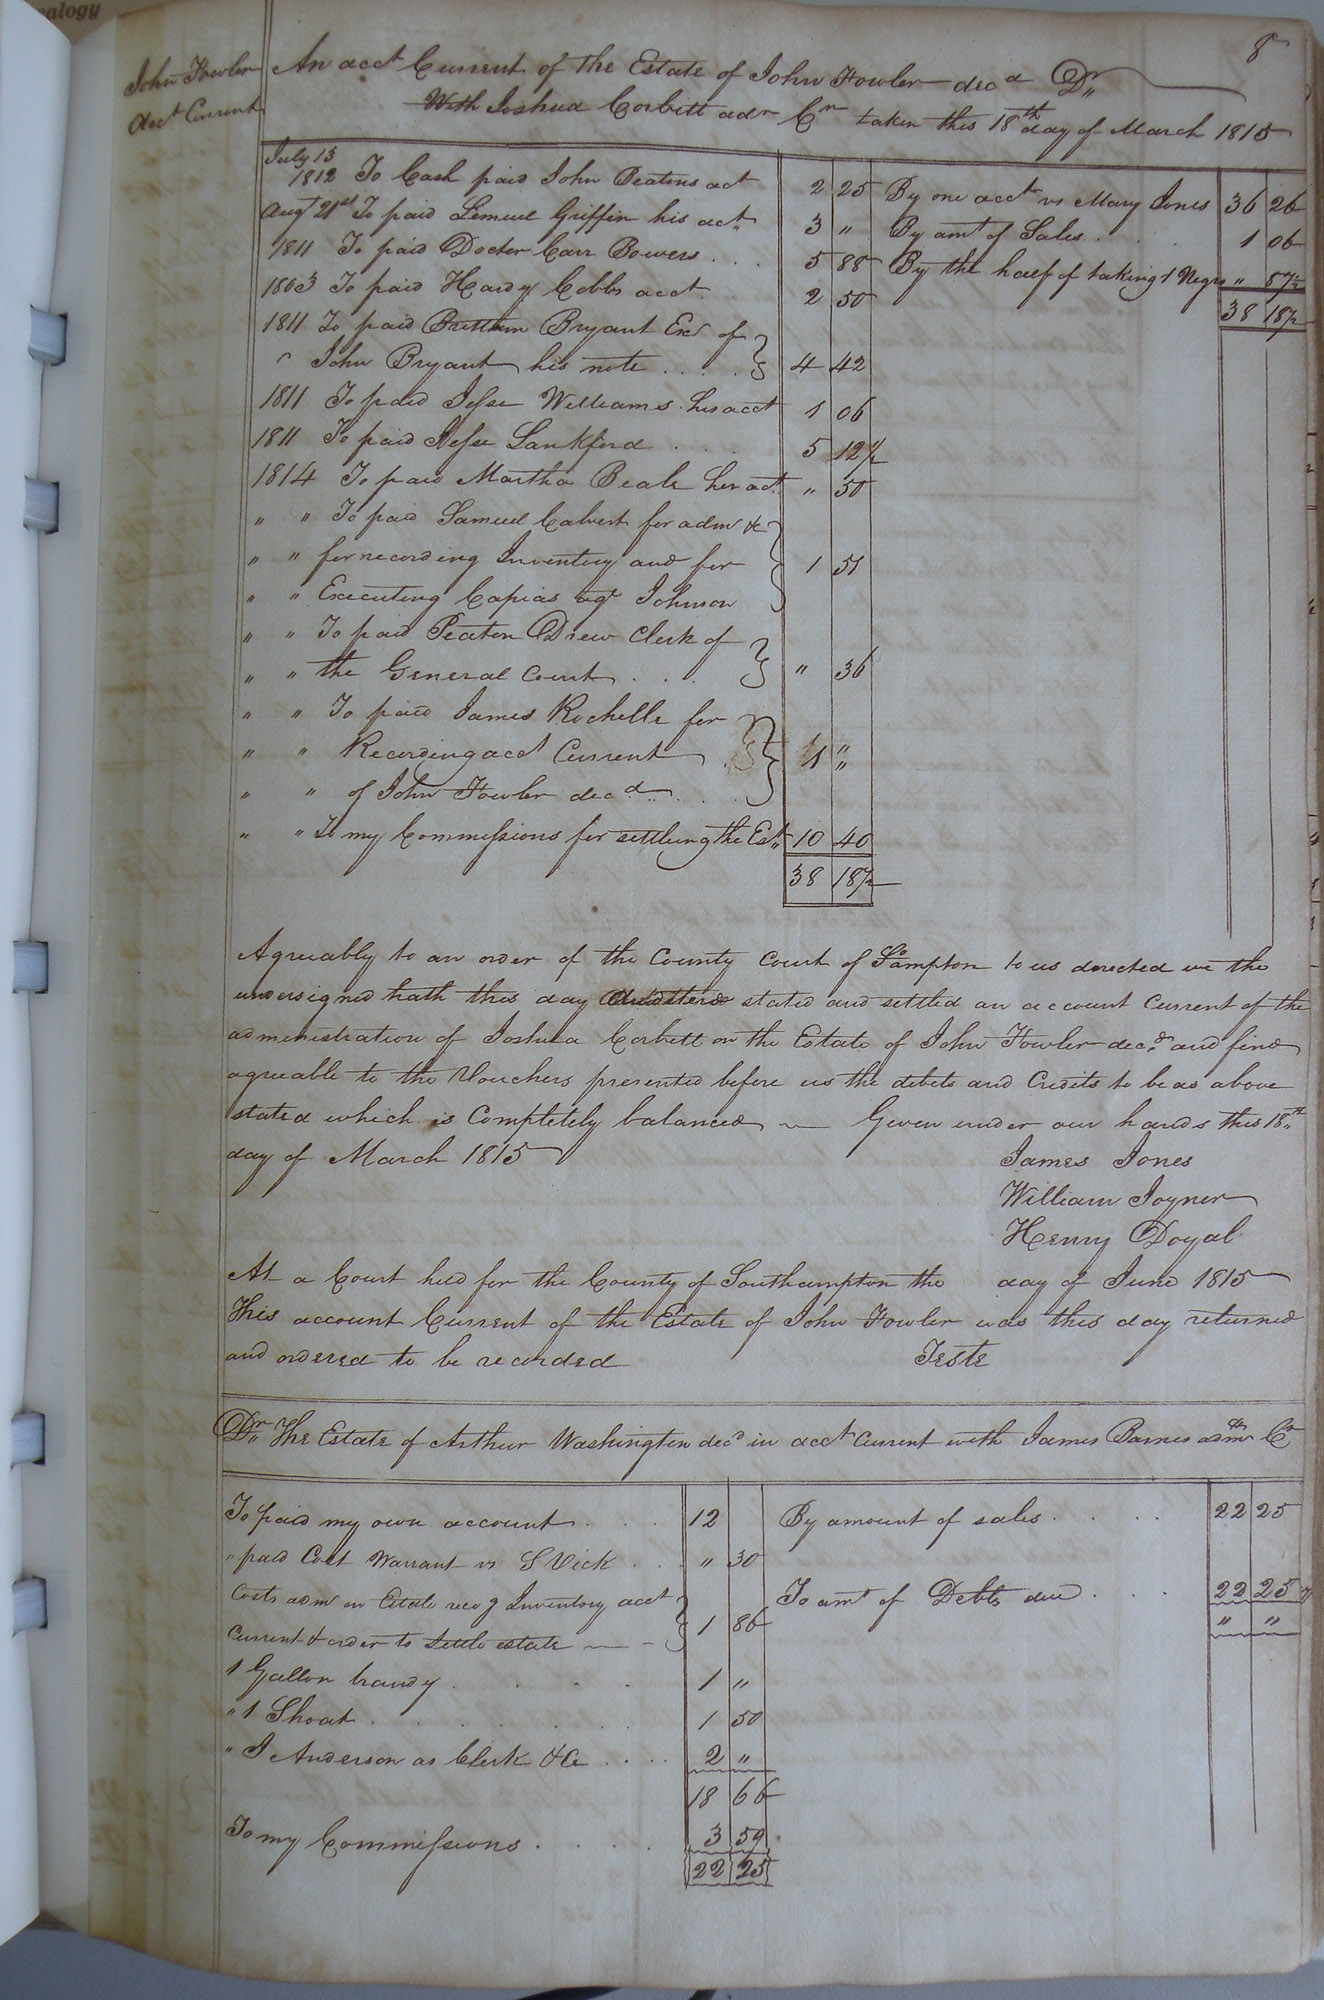 ealogy
8
John Fowler
Acct Current
An acct Current of the Estate of John Fowler decd Dr
With Joshua Corbitt admr Cr taken this 18th day of March 1815
July 13
1812 To Cash paid John Beatons act 2 25 By one acct vs Mary Jones 36 26
Augt 21st To paid Lemuel Griffin his act 3 " By amt of Sales . . 1 06
1811 To paid Docter Carr Bowers . . . 5 88 By the half of taking 1 Negro " 87½
1803 To paid Hardy Cobbs acct . 2 50 38 18½
1811 To paid Brittain Bryant Exr of
" John Bryant his note . . . . 4 42
1811 To paid Jesse Williams his acct 1 06
1811 To paid Jesse Lankford . . . 5 12½
1814 To paid Martha Beale her act " 50
" " To paid Samuel Calvert for adm &c
" " for recording Inventory and for 1 51
" " Executing Capias agt Johnson
" " To paid Peaton Drew Clerk of
" " the General Court . . . " 36
" " To paid James Rochelle for
" " Recording acct Current 1 "
" " of John Fowler decd . . .
" " To my Commissions for settling the Est. 10 40
38 18½
Agreeably to an order of the County Court of So.ampton to us directed we the
undersigned hath this day stated and settled an account Current of the
administration of Joshua Corbett on the Estate of John Fowler decd and find
agreeable to the Vouchers presented before us the debets and Credits to be as above
stated which is Completely balanced — Given under our hands this 18th
day of March 1815 James Jones
William Joyner
Henry Doyal
At a Court held for the County of Southampton the day of June 1815
This account Current of the Estate of John Fowler was this day returned
and ordered to be recorded Teste
Dr The Estate of Arthur Washington decd in acct Current with James Barnes admr Cr
To paid my own account . . . 12 By amount of sales . . . . 22 25
" paid Cost Warrant vs S Vick . . . " 30
Costs adm on Estate recog Inventory acct To amt of Debts due . . . 22 25
Current & order to settle estate — 1 86 " "
1 Gallon brandy . . . . 1 "
" 1 Shoat . . . . . . 1 50
" J Anderson as Clerk &c . . . . 2 "
18 66
To my Commissions . . . . 3 59
22 25